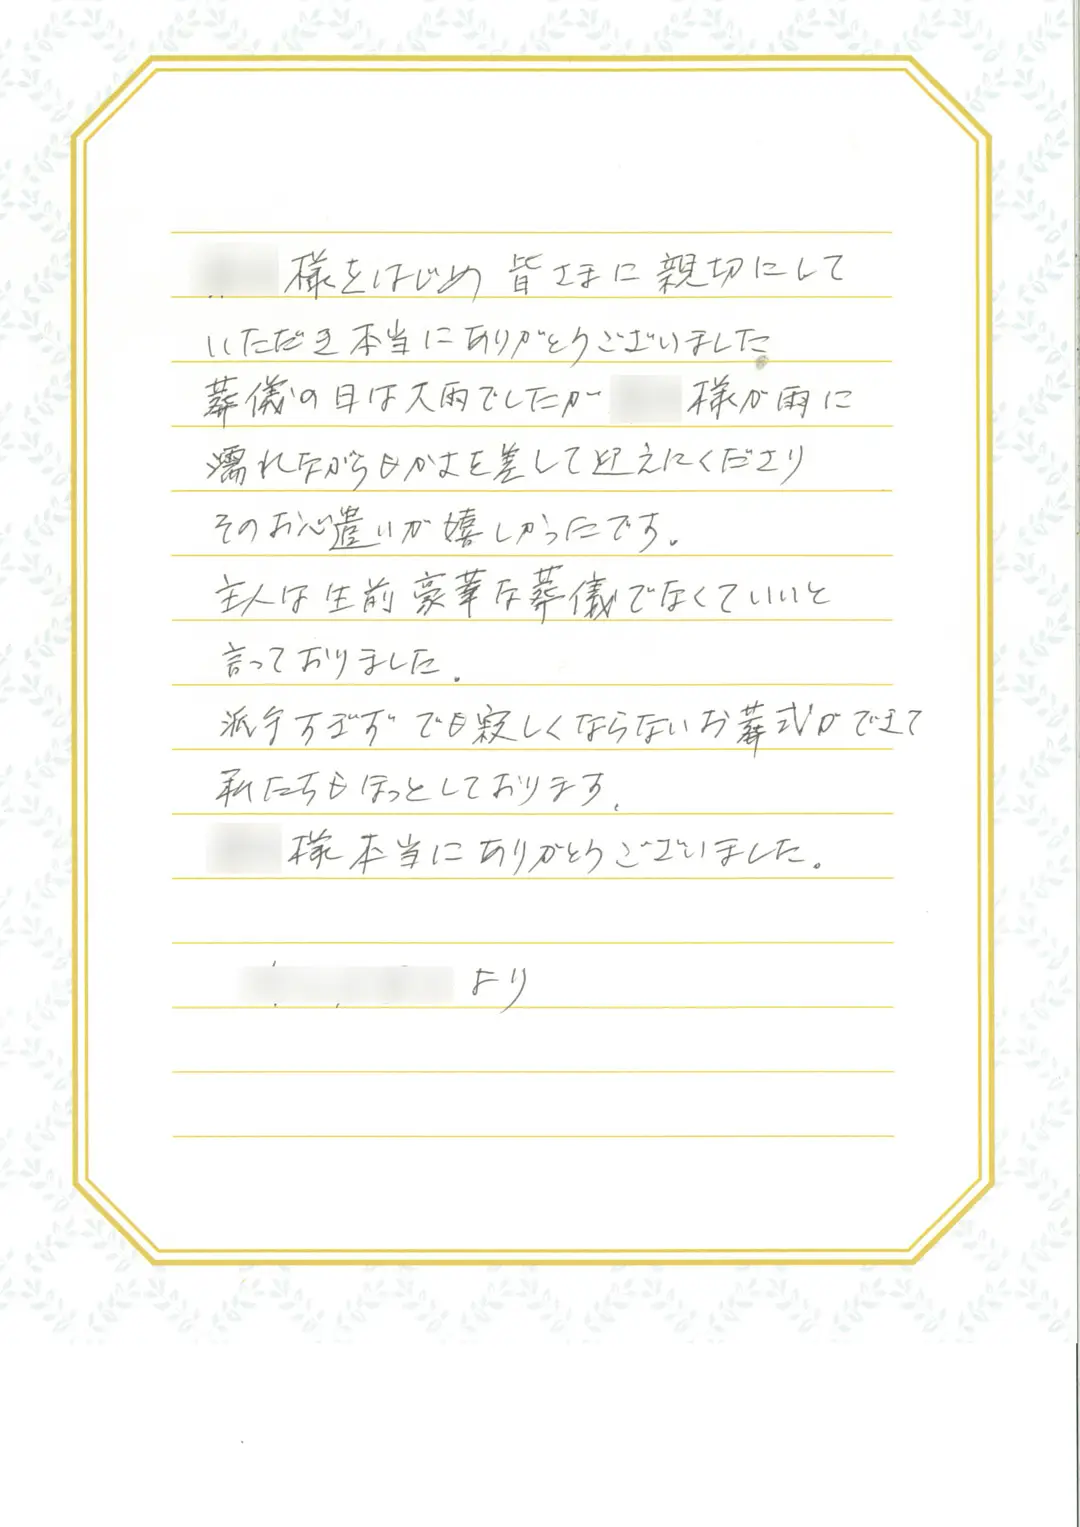 様をはじめ 皆さまに 親切にして
いただき 本当に ありがとうございました
葬儀の日は大雨でしたが 様が雨に
濡れながらもかさを差して迎えにくださり
そのお心遣いが嬉しかったです。
主人は生前豪華な葬儀でなくていいと
言っておりました。
派手すぎず でも寂しくならないお葬式ができて
私たちもほっとしております。
様 本当に ありがとうございました。
より